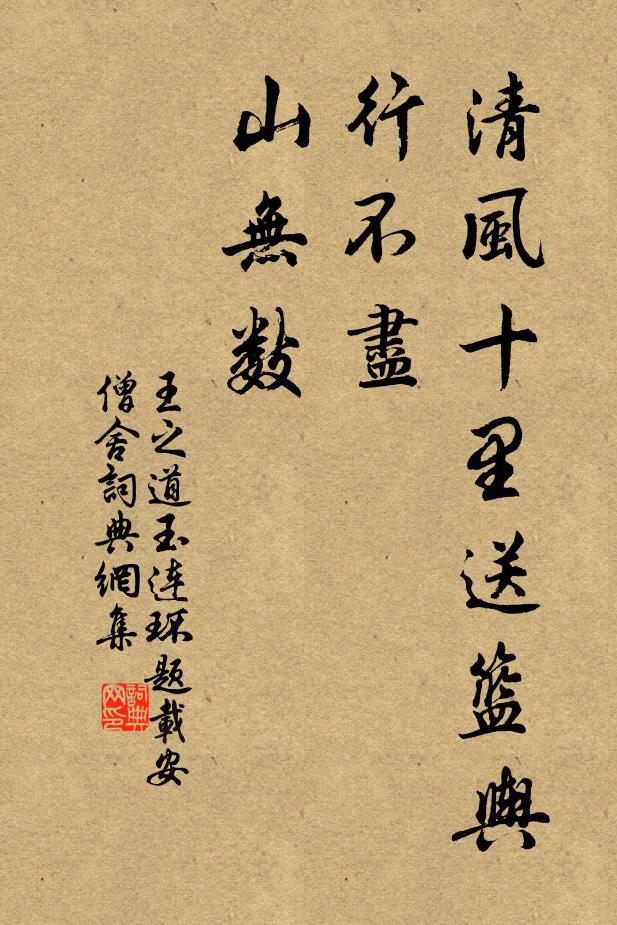 清風十里送籃輿
行不盡
山無数
王之道玉連環題載安
僧舍詞典網集
詞典
网印